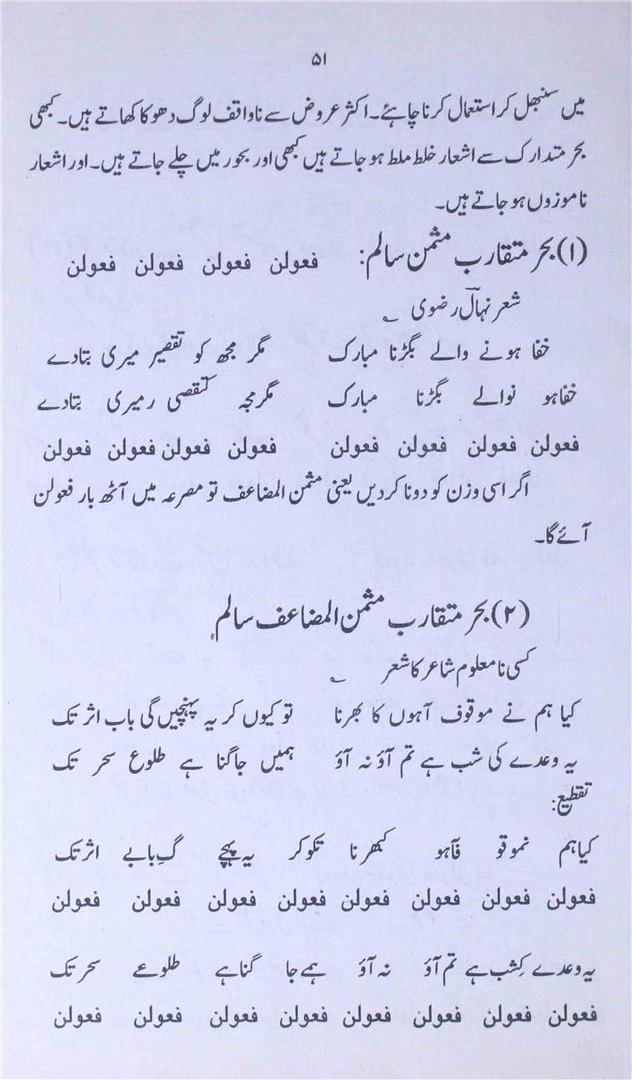 ۵۱
میں سنبھل کر استعمال کرنا چاہئے۔ اکثر عروض سے ناواقف لوگ دھوکا کھاتے ہیں۔ کبھی
بحر متدارک سے اشعار خلط ملط ہو جاتے ہیں کبھی اور بحور میں چلے جاتے ہیں۔ اور اشعار
ناموزوں ہو جاتے ہیں۔
(۱) بحر متقارب مثمن سالم: فعولن فعولن فعولن فعولن
شعر نہالؔ رضوی ؎
خفا ہونے والے بگڑنا مبارک مگر مجھ کو تقصیر میری بتادے
خفاہو نوالے بگڑنا مبارک مگرمجہ کتقصی رمیری بتادے
فعولن فعولن فعولن فعولن فعولن فعولن فعولن فعولن
اگر اسی وزن کو دونا کردیں یعنی مثمن المضاعف تو مصرعہ میں آٹھ بار فعولن
آئے گا۔
(۲) بحر متقارب مثمن المضاعف سالم
کسی نامعلوم شاعر کا شعر ؎
کیا ہم نے موقوف آہوں کا بھرنا تو کیوں کر یہ پہنچیں گی باب اثر تک
یہ وعدے کی شب ہے تم آؤ نہ آؤ ہمیں جاگنا ہے طلوع سحر تک
تقطیع:
کیاہم نموقو فآہو کبھرنا تکوکر یہ پہچے گِ بابے اثر تک
فعولن فعولن فعولن فعولن فعولن فعولن فعولن فعولن
یہ وعدے کِشب ہے تم آؤ نہ آؤ ہمے جا گناہے طلوعے سحر تک
فعولن فعولن فعولن فعولن فعولن فعولن فعولن فعولن